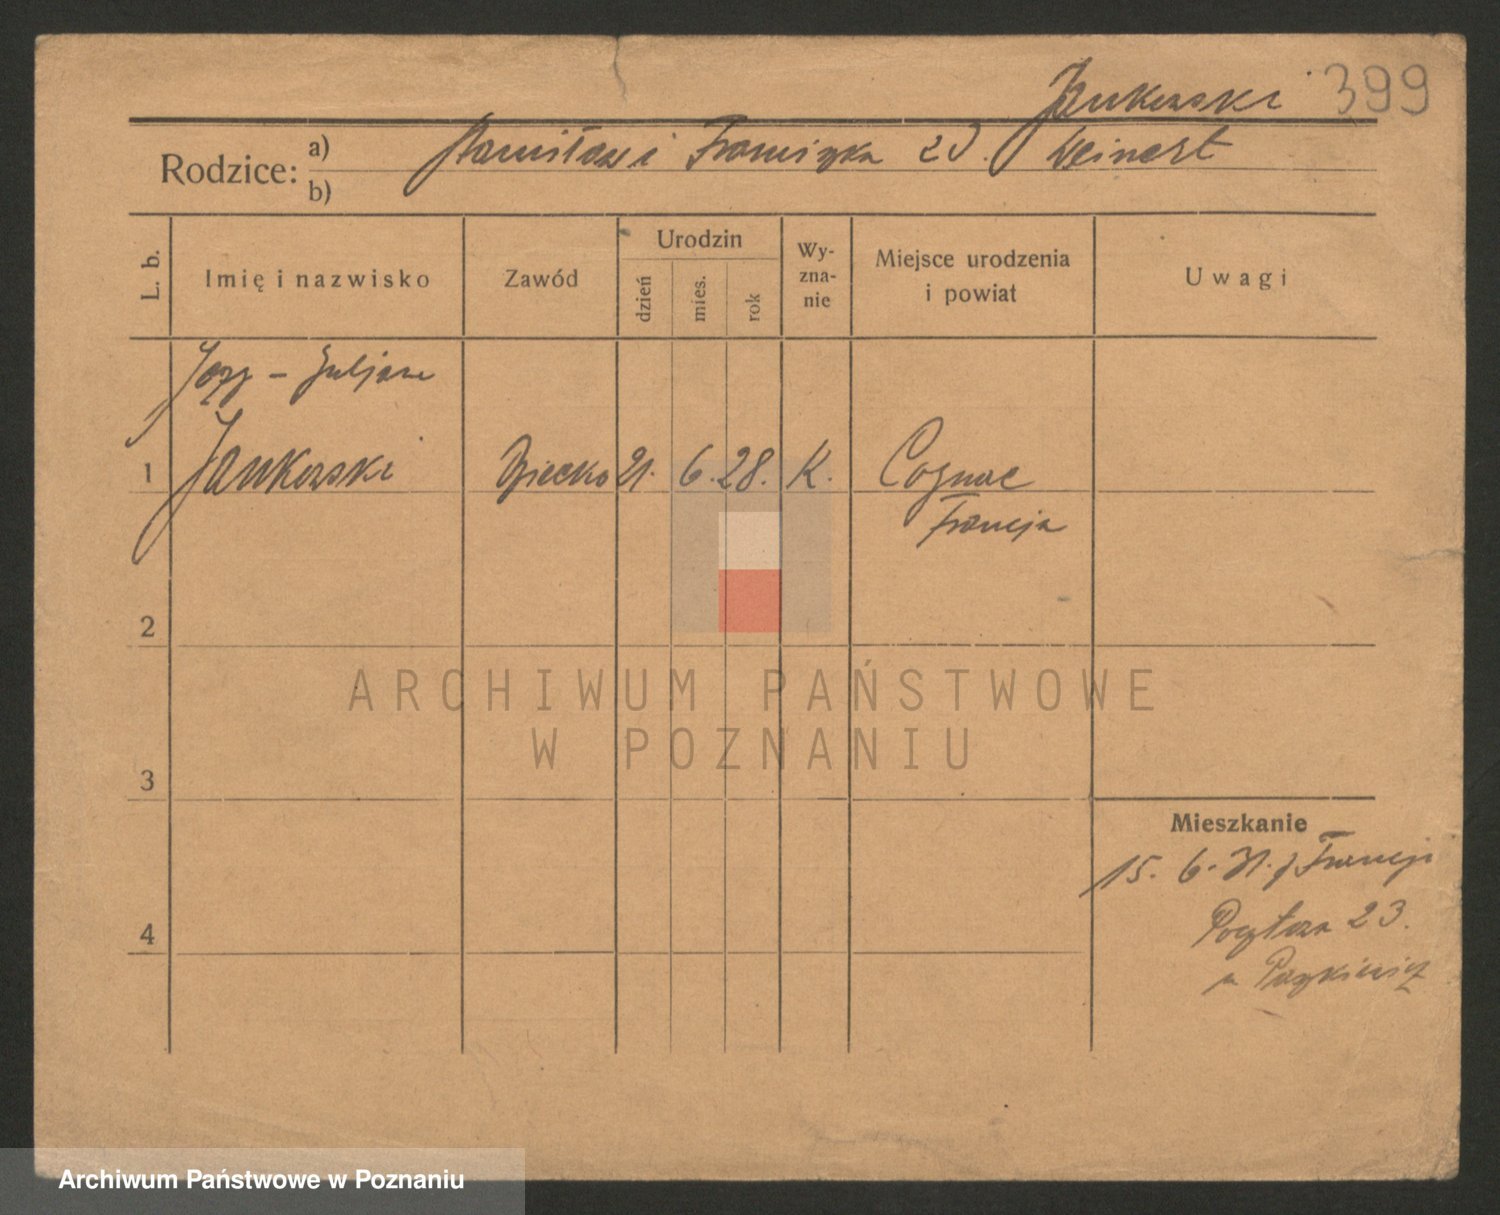 Jankowski 399
Rodzice: a) Stanisław i Franciszka zd. Weinert
b)
L. b.
Imię i nazwisko
Zawód
Urodzin
dzień
mies.
rok
Wy-
zna-
nie
Miejsce urodzenia
i powiat
Uwagi
Juljan
1 Jankowski Dziecko 21. 6. 28. K. Cognac
Francja
2
3
4
Mieszkanie
15. 6. 31. z Francji
23.
ARCHIWUM PAŃSTWOWE
W POZNANIU
Archiwum Państwowe w Poznaniu